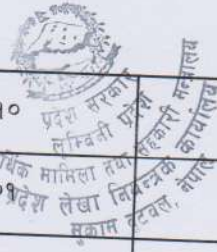 १०
प्रदेश सरकार
लुम्बिनी प्रदेश
आर्थिक मामिला तथा सहकारी मन्त्रालय
प्रदेश लेखा नियन्त्रक कार्यालय
मुकाम बुटवल, नेपाल